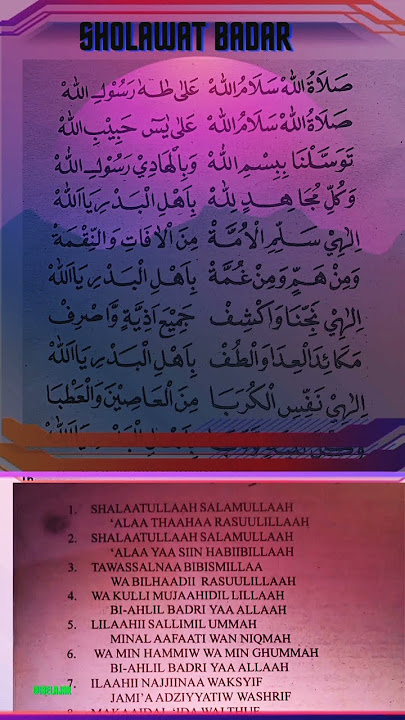 SHOLAWAT BADAR
صَلَاةُ اللهْ سَلَامُ اللهْ عَلٰى طٰهٰ رَسُوْلِ اللهْ
صَلَاةُ اللهْ سَلَامُ اللهْ عَلٰى يٰسٓ حَبِيْبِ اللهْ
تَوَسَّلْنَا بِبِسْمِ اللهْ وَبِالْهَادِيْ رَسُوْلِ اللهْ
وَكُلِّ مُجَاهِدٍ لِلهْ بِاَهْلِ الْبَدْرِ يَا اَللهْ
اِلٰهِيْ سَلِّمِ الْاُمَّةْ مِنَ الْاٰفَاتِ وَالنِّقْمَةْ
وَمِنْ هَمٍّ وَمِنْ غُمَّةْ بِاَهْلِ الْبَدْرِ يَا اَللهْ
اِلٰهِيْ نَجِّنَا وَاكْشِفْ جَمِيْعَ اَذِيَّةٍ وَّاصْرِفْ
مَكَائِدَ الْعِدَا وَالْطُفْ بِاَهْلِ الْبَدْرِ يَا اَللهْ
اِلٰهِيْ نَفِّسِ الْكُرَبَا مِنَ الْعَاصِيْنَ وَالْعَطْبَا
1. SHALAATULLAAH SALAMULLAAH
'ALAA THAAHAA RASUULILLAAH
2. SHALAATULLAAH SALAMULLAAH
'ALAA YAA SIIN HABIIBILLAAH
3. TAWASSALNAA BIBISMILLAA
WA BILHAADII RASUULILLAAH
4. WA KULLI MUJAAHIDIL LILLAAH
BI-AHLIL BADRI YAA ALLAAH
5. LILAAHII SALLIMIL UMMAH
MINAL AAFAATI WAN NIQMAH
6. WA MIN HAMMIW WA MIN GHUMMAH
BI-AHLIL BADRI YAA ALLAAH
7. ILAAHII NAJJINAA WAKSYIF
JAMI'A ADZIYYATIW WASHRIF